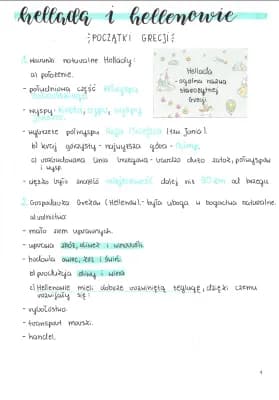 hellada i hellenowie
POCZĄTKI GRECJI
1. Warunki naturalne Hellady:
a) położenie.
Hellada
- ogólna nazwa
starożytnej
Grecji
- południowa część
- wyspy: Kreta, Cypr,
- wybrzeże półwyspu Azja Mniejsza (tzw. Jonia).
b) kraj górzysty - najwyższa góra - Olimp.
c) urozmaicona linia brzegowa - bardzo dużo zatok, półwyspów
i wysp.
- ciężko było znaleźć miejscowość dalej niż 90 km od brzegu
2. Gospodarka Greków (Hellenów) - była uboga w bogactwa naturalne.
a)
- mało ziem uprawnych.
- uprawa zbóż, oliwek i winorośli.
- hodowla owiec, kóz i świń.
b) produkcja oliwy i wina
c) Hellenowie mieli dobrze rozwiniętą żeglugę, dzięki czemu
rozwijały się:
- rybołóstwo.
- transport morski.
- handel.